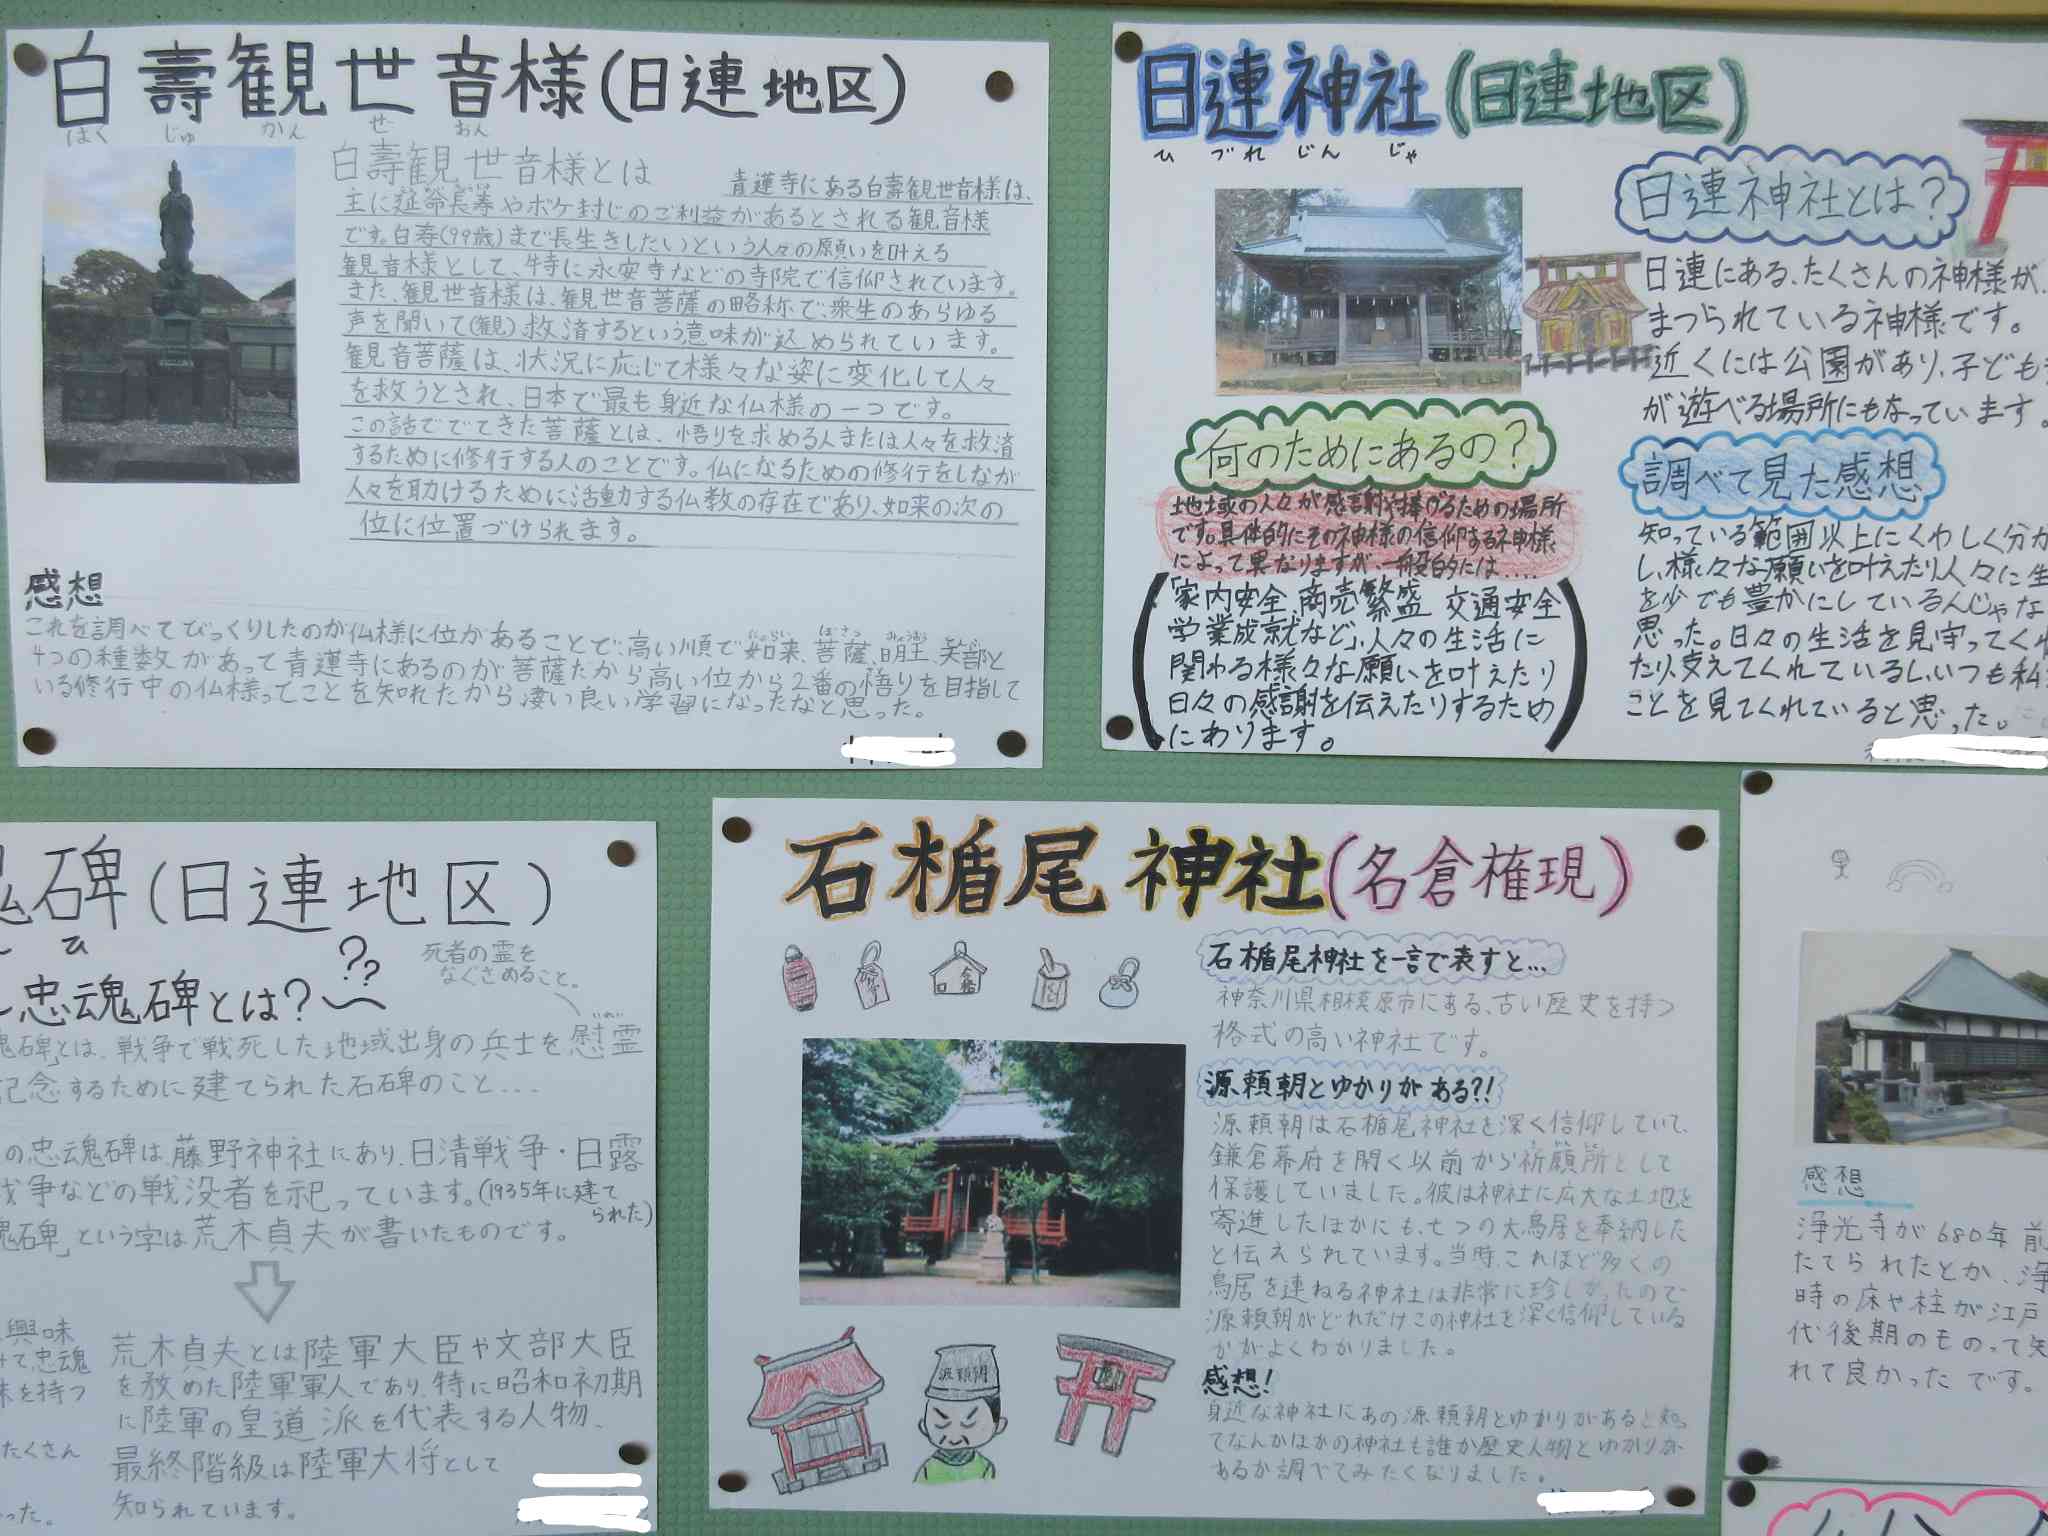 白壽観世音様(日連地区)
はく じゅ かん せ おん
白壽観世音様とは
青蓮寺にある白壽観世音様は、
主に延命長寿やボケ封じのご利益があるとされる観音様
です。白寿(99歳)まで長生きしたいという人々の願いを叶える
観音様として、特に永安寺などの寺院で信仰されています。
また、観世音様は、観世音菩薩の略称で、衆生のあらゆる
声を聞いて(観)、救済するという意味が込められています。
観音菩薩は、状況に応じて様々な姿に変化して人々
を救うとされ、日本で最も身近な仏様の一つです。
この話ででてきた菩薩とは、悟りを求める人または人々を救済
するために修行する人のことです。仏になるための修行をしなが
人々を助けるために活動する仏教の存在であり、如来の次の
位に位置づけられます。
感想
これを調べてびっくりしたのが仏様に位があることで、高い順で如来、菩薩、明王、天部と
4つの種数があって青蓮寺にあるのが菩薩だから高い位から2番の悟りを目指して
いる修行中の仏様ってことを知れたから凄い良い学習になったなと思った。
日連神社(日連地区)
ひ づれ じん じゃ
日連神社とは?
日連にある、たくさんの神様が、
まつられている神様です。
近くには公園があり、子ども
が遊べる場所にもなっています。
何のためにあるの?
地域の人々が感謝や捧げるための場所
です。具体的にその神様の信仰する神様
によって異なりますが、一般的には....
「家内安全、商売繁盛 交通安全
学業成就など」、人々の生活に
関わる様々な願いを叶えたり
日々の感謝を伝えたりするため
にあります。
調べて見た感想
知っている範囲以上にくわしく分か
し、様々な願いを叶えたり人々に生
を少でも豊かにしているんじゃな
思った。日々の生活を見守ってくれ
たり、支えてくれているし、いつも私
ことを見てくれていると思った。
魂碑(日連地区)
ひ
忠魂碑とは???
死者の霊を
なぐさめること。
魂碑」とは、戦争で戦死した地域出身の兵士を慰霊
記念するために建てられた石碑のこと....
の忠魂碑は、藤野神社にあり、日清戦争・日露
戦争などの戦没者を祀っています。(1935年に建て
られた)
魂碑」という字は荒木貞夫が書いたものです。
興味
みて、忠魂
味を持つ
たくさん
った。
荒木貞夫とは陸軍大臣や文部大臣
を務めた陸軍軍人であり、特に昭和初期
に陸軍の皇道派を代表する人物、
最終階級は陸軍大将として
知られています。
石楯尾神社(名倉権現)
石楯尾神社を一言で表すと...
神奈川県相模原市にある、古い歴史を持つ
格式の高い神社です。
源頼朝とゆかりがある?!
源頼朝は石楯尾神社を深く信仰していて、
鎌倉幕府を開く以前から祈願所として
保護していました。彼は神社に広大な土地を
寄進したほかにも、七つの大鳥居を奉納した
と伝えられています。当時、これほど多くの
鳥居を連ねる神社は非常に珍しかったので
源頼朝がどれだけこの神社を深く信仰している
かがよくわかりました。
感想!
身近な神社にあの源頼朝とゆかりがあると知っ
てなんかほかの神社も誰か歴史人物とゆかりが
あるか調べてみたくなりました。
源頼朝
感想
浄光寺が680年前
たてられたとか、浄
時の床や柱が江戸
代後期のものって知
れて良かったです。